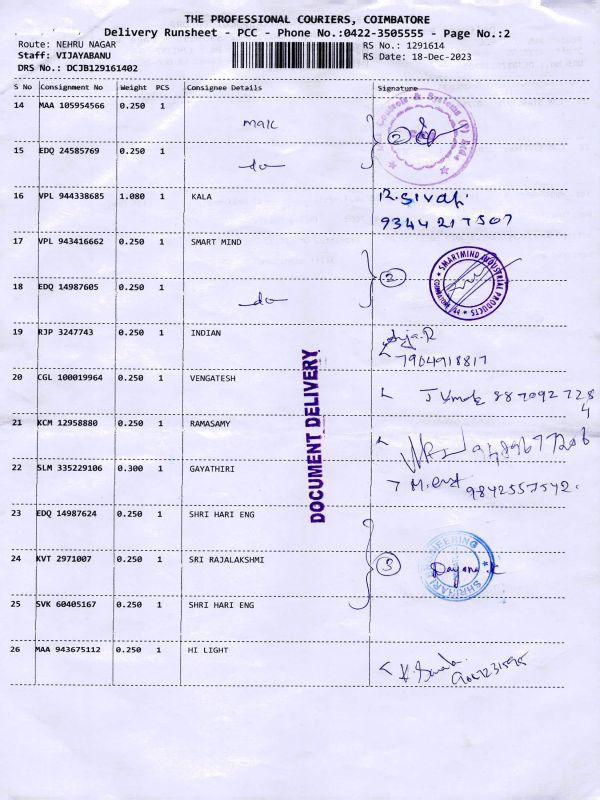 THE PROFESSIONAL COURIERS, COIMBATORE
Delivery Runsheet - PCC - Phone No.:0422-3505555 - Page No.:2
Route: NEHRU NAGAR
RS No.: 1291614
Staff: VIJAYABANU
RS Date: 18-Dec-2023
DRS No.: DCJB129161402
S No Consignment No Weight PCS Consignee Details Signature
14 MAA 105954566 0.250 1
Controls & Systems (P) Ltd
2
15 EDQ 24585769 0.250 1
do
16 VPL 944338685 1.080 1 KALA
R. Sivaji
9344217507
17 VPL 943416662 0.250 1 SMART MIND
2
SMARTMIND INDUSTRIAL PRODUCTS
18 EDQ 14987605 0.250 1
do
19 RJP 3247743 0.250 1 INDIAN
7904918817
20 CGL 100019964 0.250 1 VENGATESH
887092728
4
21 KCM 12958880 0.250 1 RAMASAMY
22 SLM 335229106 0.300 1 GAYATHIRI
9842557542.
DOCUMENT DELIVERY
23 EDQ 14987624 0.250 1 SHRI HARI ENG
24 KVT 2971007 0.250 1 SRI RAJALAKSHMI
3
SHRIHARI ENGINEERING
Dayana.K
25 SVK 60405167 0.250 1 SHRI HARI ENG
26 MAA 943675112 0.250 1 HI LIGHT